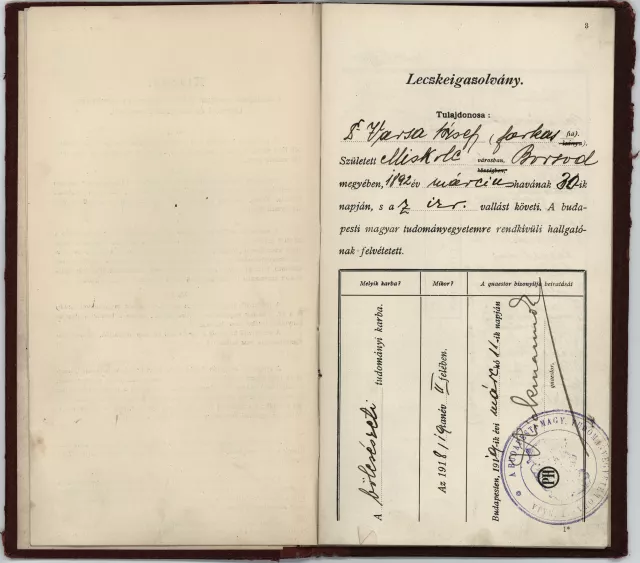 3
Leczkeigazolvány.
Tulajdonosa:
Varsa József (Farkas fia).
Született Miskolc városban, Borsod
megyében, 1892 év március havának 30-ik
napján, s a z izr. vallást követi. A buda-
pesti magyar tudományegyetemre rendkívüli hallgató-
nak felvétetett.
Melyik karba? Mikor? A quaestor bizonyítja beiratását
A bölcsészeti tudományi karba.
Az 1918/19 tanév II felében.
Budapesten, 1919-ik évi márc hó 11-ik napján
quaestor.
A BUDAPESTI MAGY.
PH
1*